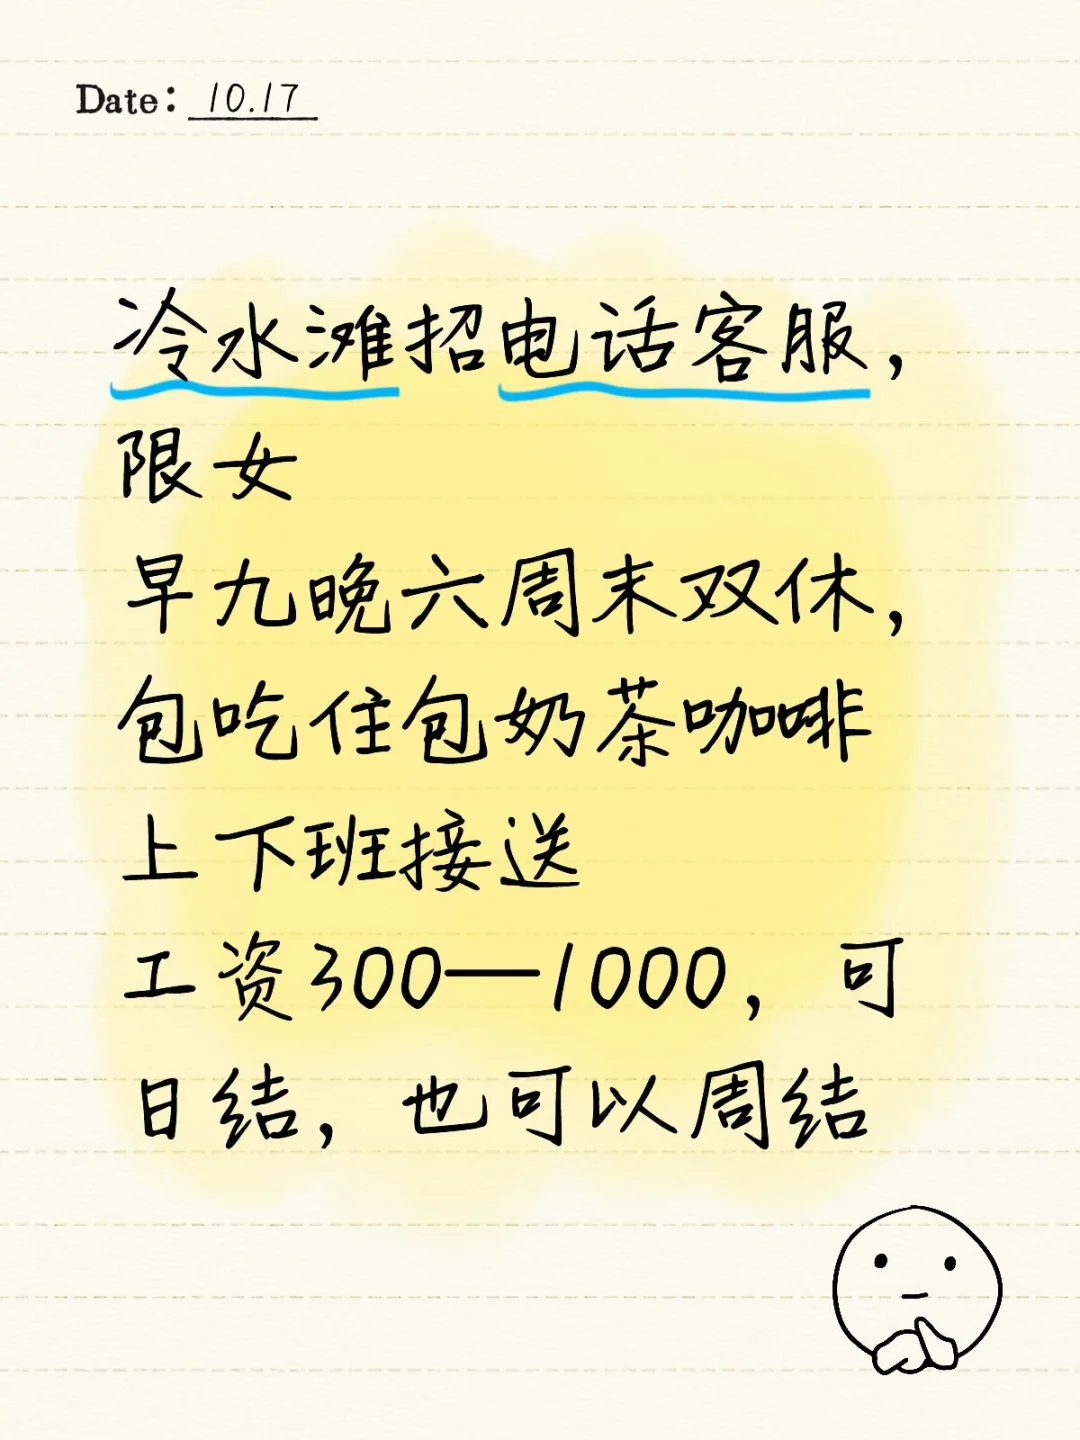 Date: 10.17
冷水滩招电话客服，
限女
早九晚六周末双休，
包吃住包奶茶咖啡
上下班接送
工资300—1000，可
日结，也可以周结